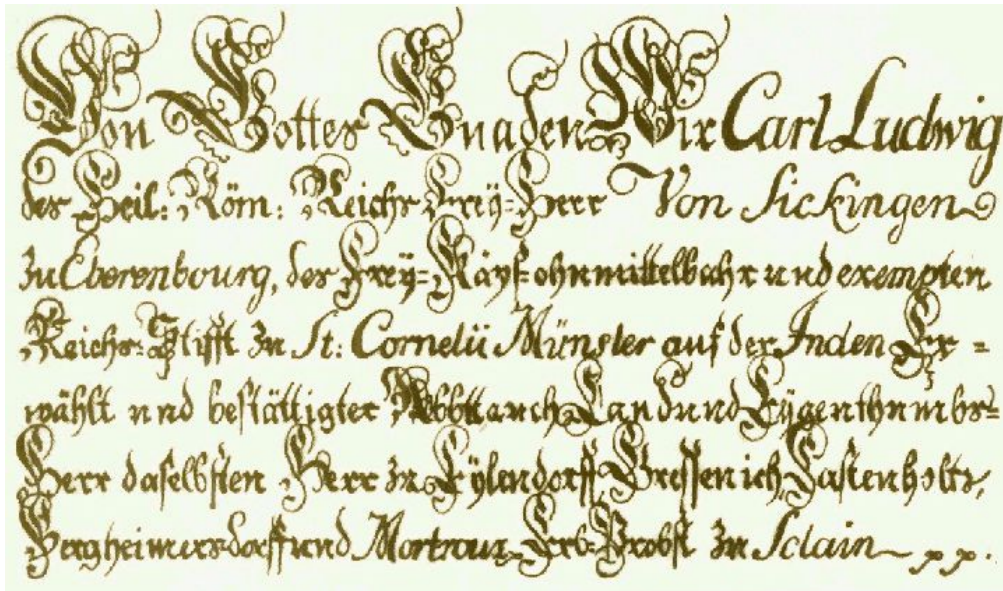 Von Gottes Gnaden Wir Carl Ludwig
des Heil: Röm: Reichs Frey=Herr Von Sickingen
zu Eberenbourg, des Frey=Käyß=ohnmittelbahr und exempten
Reichs=Stifft zu St: Cornelii Münster auf der Inden Er=
wählt und bestättigter Abbtt auch Land und Eÿgenthumbs=
Herr daselbsten Herr zu Eÿlendorff, Gressenich, Castenholtz,
Bergheimersdorff und Mortroux, Erb=Probst zu Sclain pp.